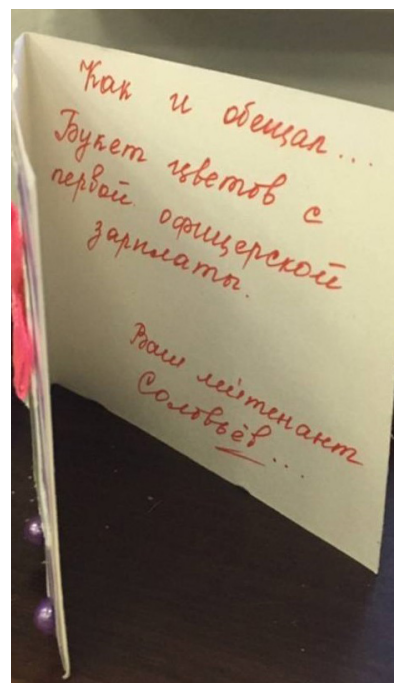 Как и обещал...
Букет цветов с
первой офицерской
зарплаты.
Ваш лейтенант
Соловьёв...